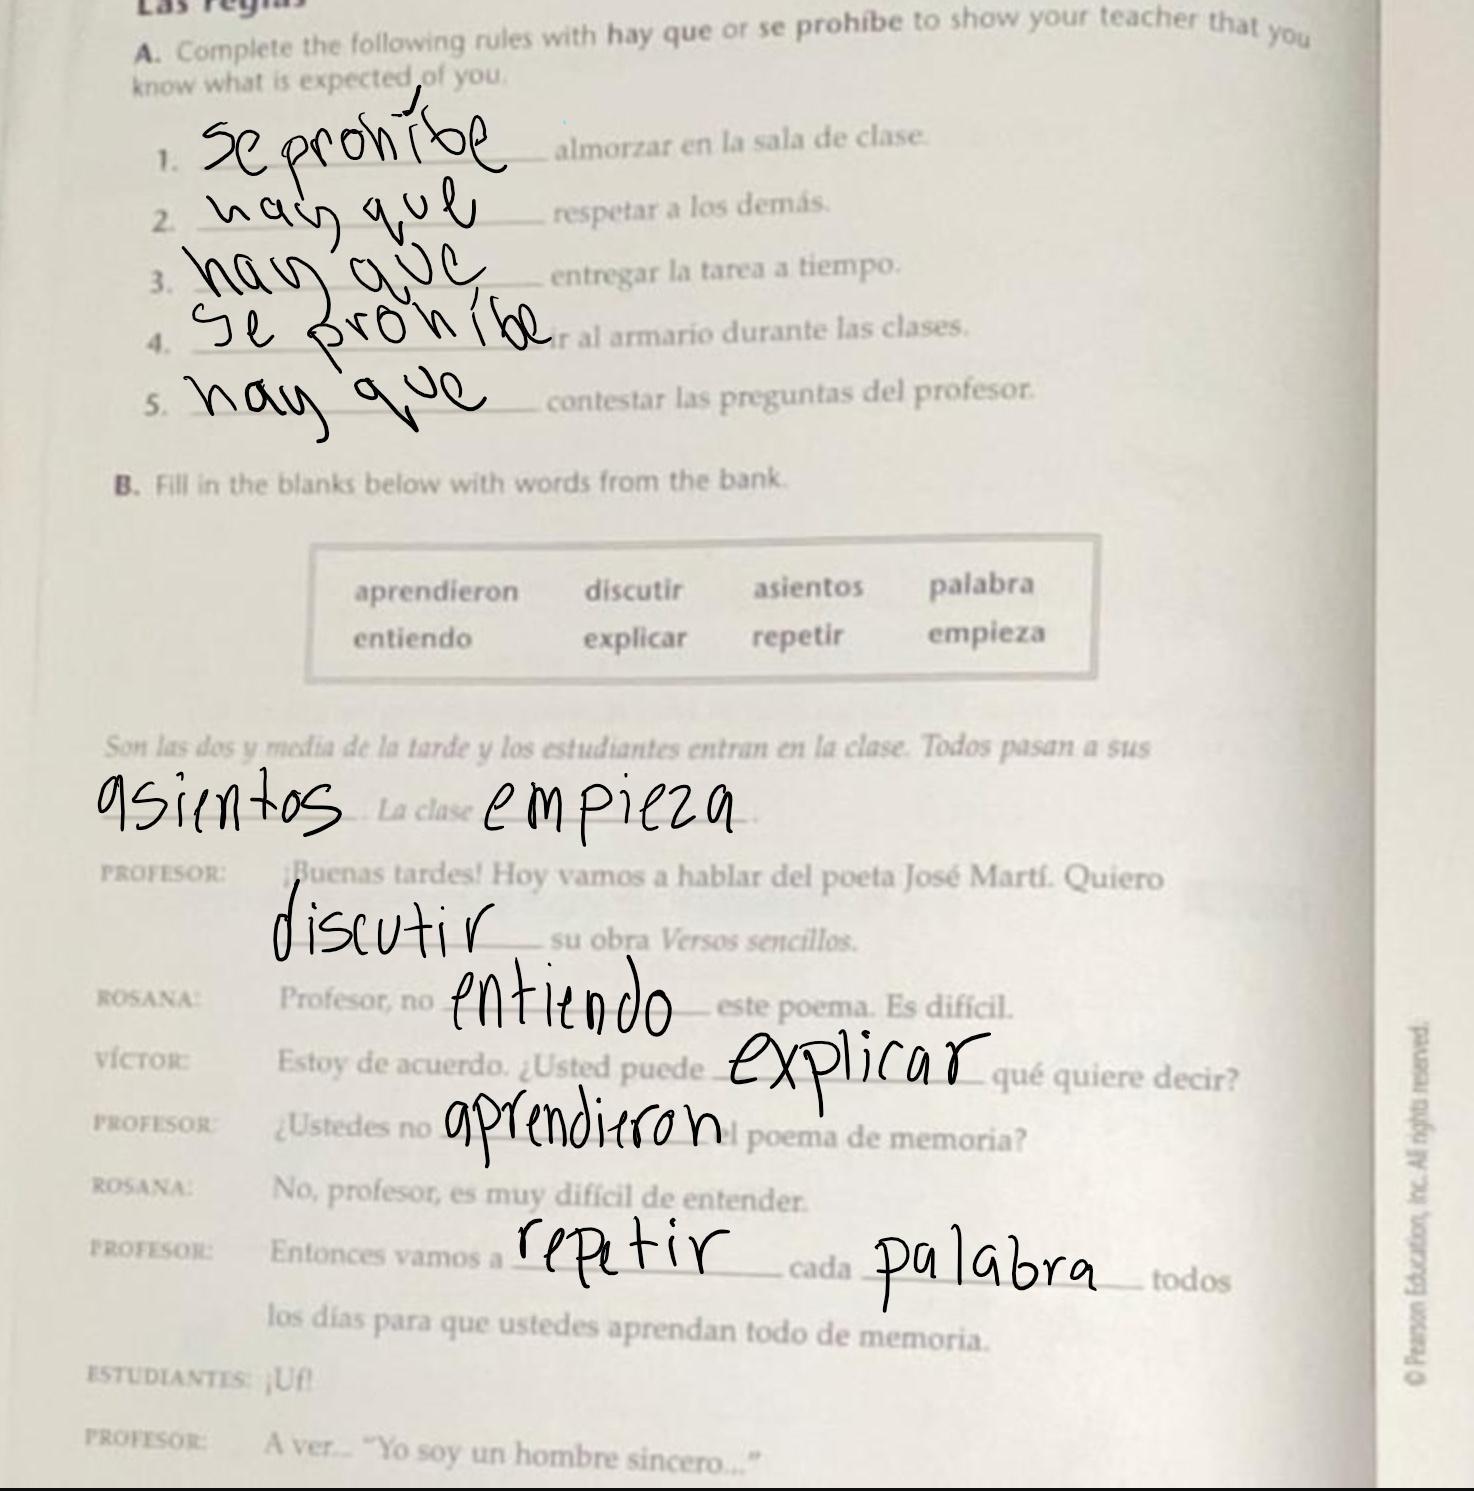 Las reglas
A. Complete the following rules with hay que or se prohíbe to show your teacher that you
know what is expected of you.
1. se prohíbe almorzar en la sala de clase.
2. hay que respetar a los demás.
3. hay que entregar la tarea a tiempo.
4. Se prohíbe ir al armario durante las clases.
5. hay que contestar las preguntas del profesor.
B. Fill in the blanks below with words from the bank.
aprendieron discutir asientos palabra
entiendo explicar repetir empieza
Son las dos y media de la tarde y los estudiantes entran en la clase. Todos pasan a sus
asientos. La clase empieza.
PROFESOR: ¡Buenas tardes! Hoy vamos a hablar del poeta José Martí. Quiero
discutir su obra Versos sencillos.
ROSANA: Profesor, no entiendo este poema. Es difícil.
VÍCTOR: Estoy de acuerdo. ¿Usted puede explicar qué quiere decir?
PROFESOR: ¿Ustedes no aprendieron el poema de memoria?
ROSANA: No, profesor, es muy difícil de entender.
PROFESOR: Entonces vamos a repetir cada palabra todos
los días para que ustedes aprendan todo de memoria.
ESTUDIANTES: ¡Uf!
PROFESOR: A ver... "Yo soy un hombre sincero..."
© Pearson Education, Inc. All rights reserved.